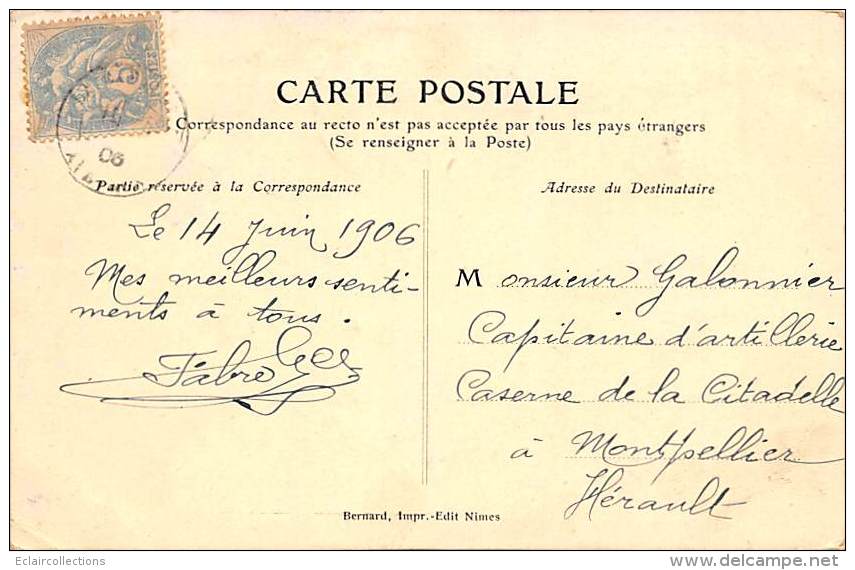 CARTE POSTALE
Correspondance au recto n'est pas acceptée par tous les pays étrangers
(Se renseigner à la Poste)
Partie réservée à la Correspondance
Adresse du Destinataire
Le 14 Juin 1906
Mes meilleurs senti-
ments à tous.
Fabre
Monsieur Galonnier
Capitaine d'artillerie
Caserne de la Citadelle
à Montpellier
Hérault
Bernard, Impr.-Edit Nimes
5
06
Eclaircollections
delcampe.net